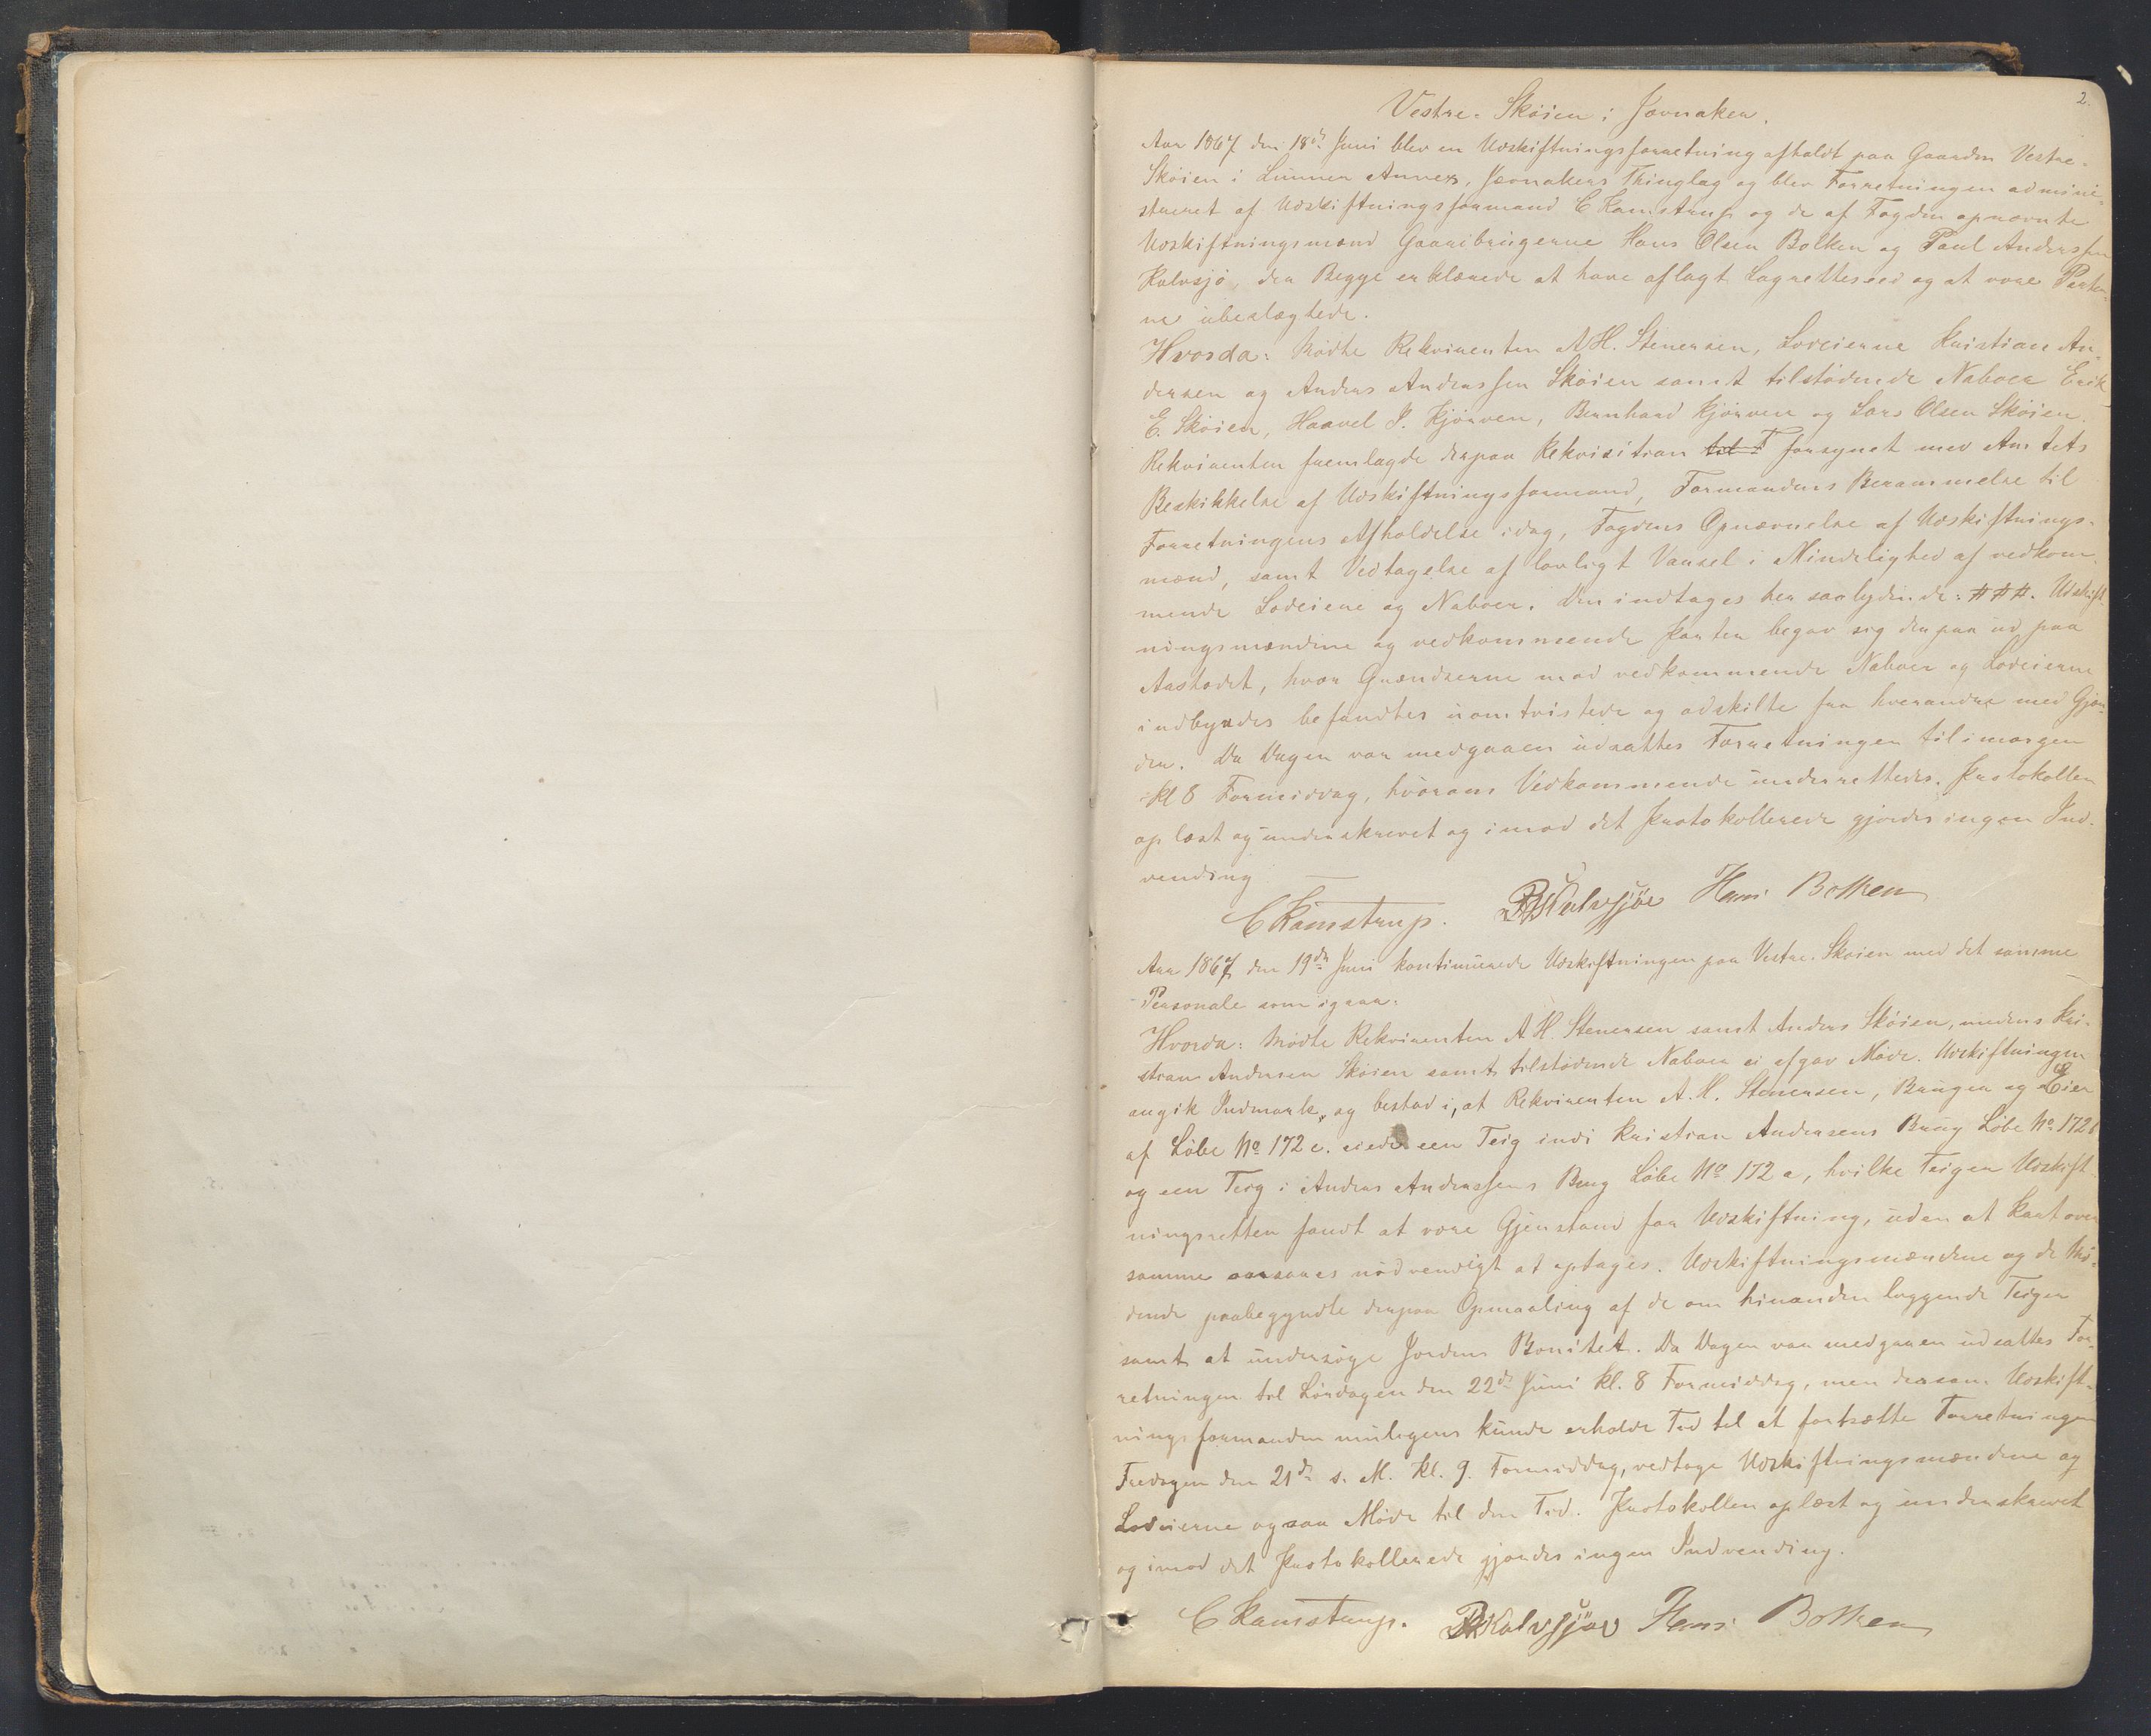 2.
Vestre-Skøien i Jevnaker.
Aar 1867 den 18de Juni blev en Udskiftningsforretning afholdt paa Gaarden Vestre-
Skøien i Lunner Annex, Jevnakers Thinglag og blev Forretningen admini-
streret af Udskiftningsformand C Kamstrup og de af Fogden opnævnte
Udskiftningsmænd Gaardbrugerne Hans Olsen Bolken og Paul Anderssen
Kalvsjø, der Begge erklærede at have aflagt Lagrettesed og at være Parter-
ne ubeslægtede.
Hvorda: Mødte Rekvirenten A H. Stenersen, Lodeierne Kristian An-
dersen og Anders Anderssen Skøien samt tilstødende Naboer Erik
E. Skøien, Haavel I. Kjørven, Bernhard Kjørven og Lars Olsen Skøien.
Rekvirenten fremlagde derpaa Rekvisition til T forsynet med Amtets
Beskikkelse af Udskiftningsformand, Formandens Berammelse til
Forretningens Afholdelse idag, Fogdens Opnævnelse af Udskiftnings-
mænd, samt Vedtagelse af lovligt Varsel i Mindelighed af vedkom-
mende Lodeiere og Naboer. Den indtages her saalydende: ###. Udskift-
ningsmændene og vedkommende Parter begav sig derpaa ud paa
Aastedet, hvor Grændserne mod vedkommende Naboer og Lodeierne
indbyrdes befandtes uomtvistede og adskilte fra hverandre med Gjær-
der. Da Dagen var medgaaen udsattes Forretningen til imorgen
kl 8 Formiddag, hvorom Vedkommende underrettedes. Protokollen
oplæst og underskrevet og imod det Protokollerede gjordes ingen Ind-
vending
C Kamstrup. PA Kalvsjøe Hans Bolken
Aar 1867 den 19de Juni kontinuerede Udskiftningen paa Vestre-Skøien med det samme
Personale som igaar.
Hvorda: Mødte Rekvirenten A H. Stenersen samt Anders Skøien, medens Kri-
stian Andersen Skøien samt tilstødende Naboer ei afgav Møde. Udskiftningen
angik Indmark, og bestod i, at Rekvirenten A. H. Stenersen, Bruger og Eier
af Løbe No 172 c. eiede een Teig indi Kristian Andersens Brug Løbe No 172 b
og een Teig i Anders Anderssens Brug Løbe No 172 a, hvilke Teiger Udskift-
ningsretten fandt at være Gjenstand for Udskiftning, uden at Kart over
samme ansaaes nødvendigt at optages. Udskiftningsmændene og de Mø-
dende paabegyndte derpaa Opmaaling af de om hinanden liggende Teiger
samt at undersøge Jordens Bonitet. Da Dagen var medgaaen udsattes For-
retningen til Lørdagen den 22de Juni kl. 8 Formiddag, men dersom Udskift-
ningsformanden muligens kunde erholde Tid til at fortsætte Forretningen
Fredagen den 21de s. M. kl. 9. Formiddag, vedtoge Udskiftningsmændene og
Lodeierne ogsaa Møde til den Tid. Protokollen oplæst og underskrevet
og imod det Protokollerede gjordes ingen Indvending.
C Kamstrup. PA Kalvsjøe Hans Bolken